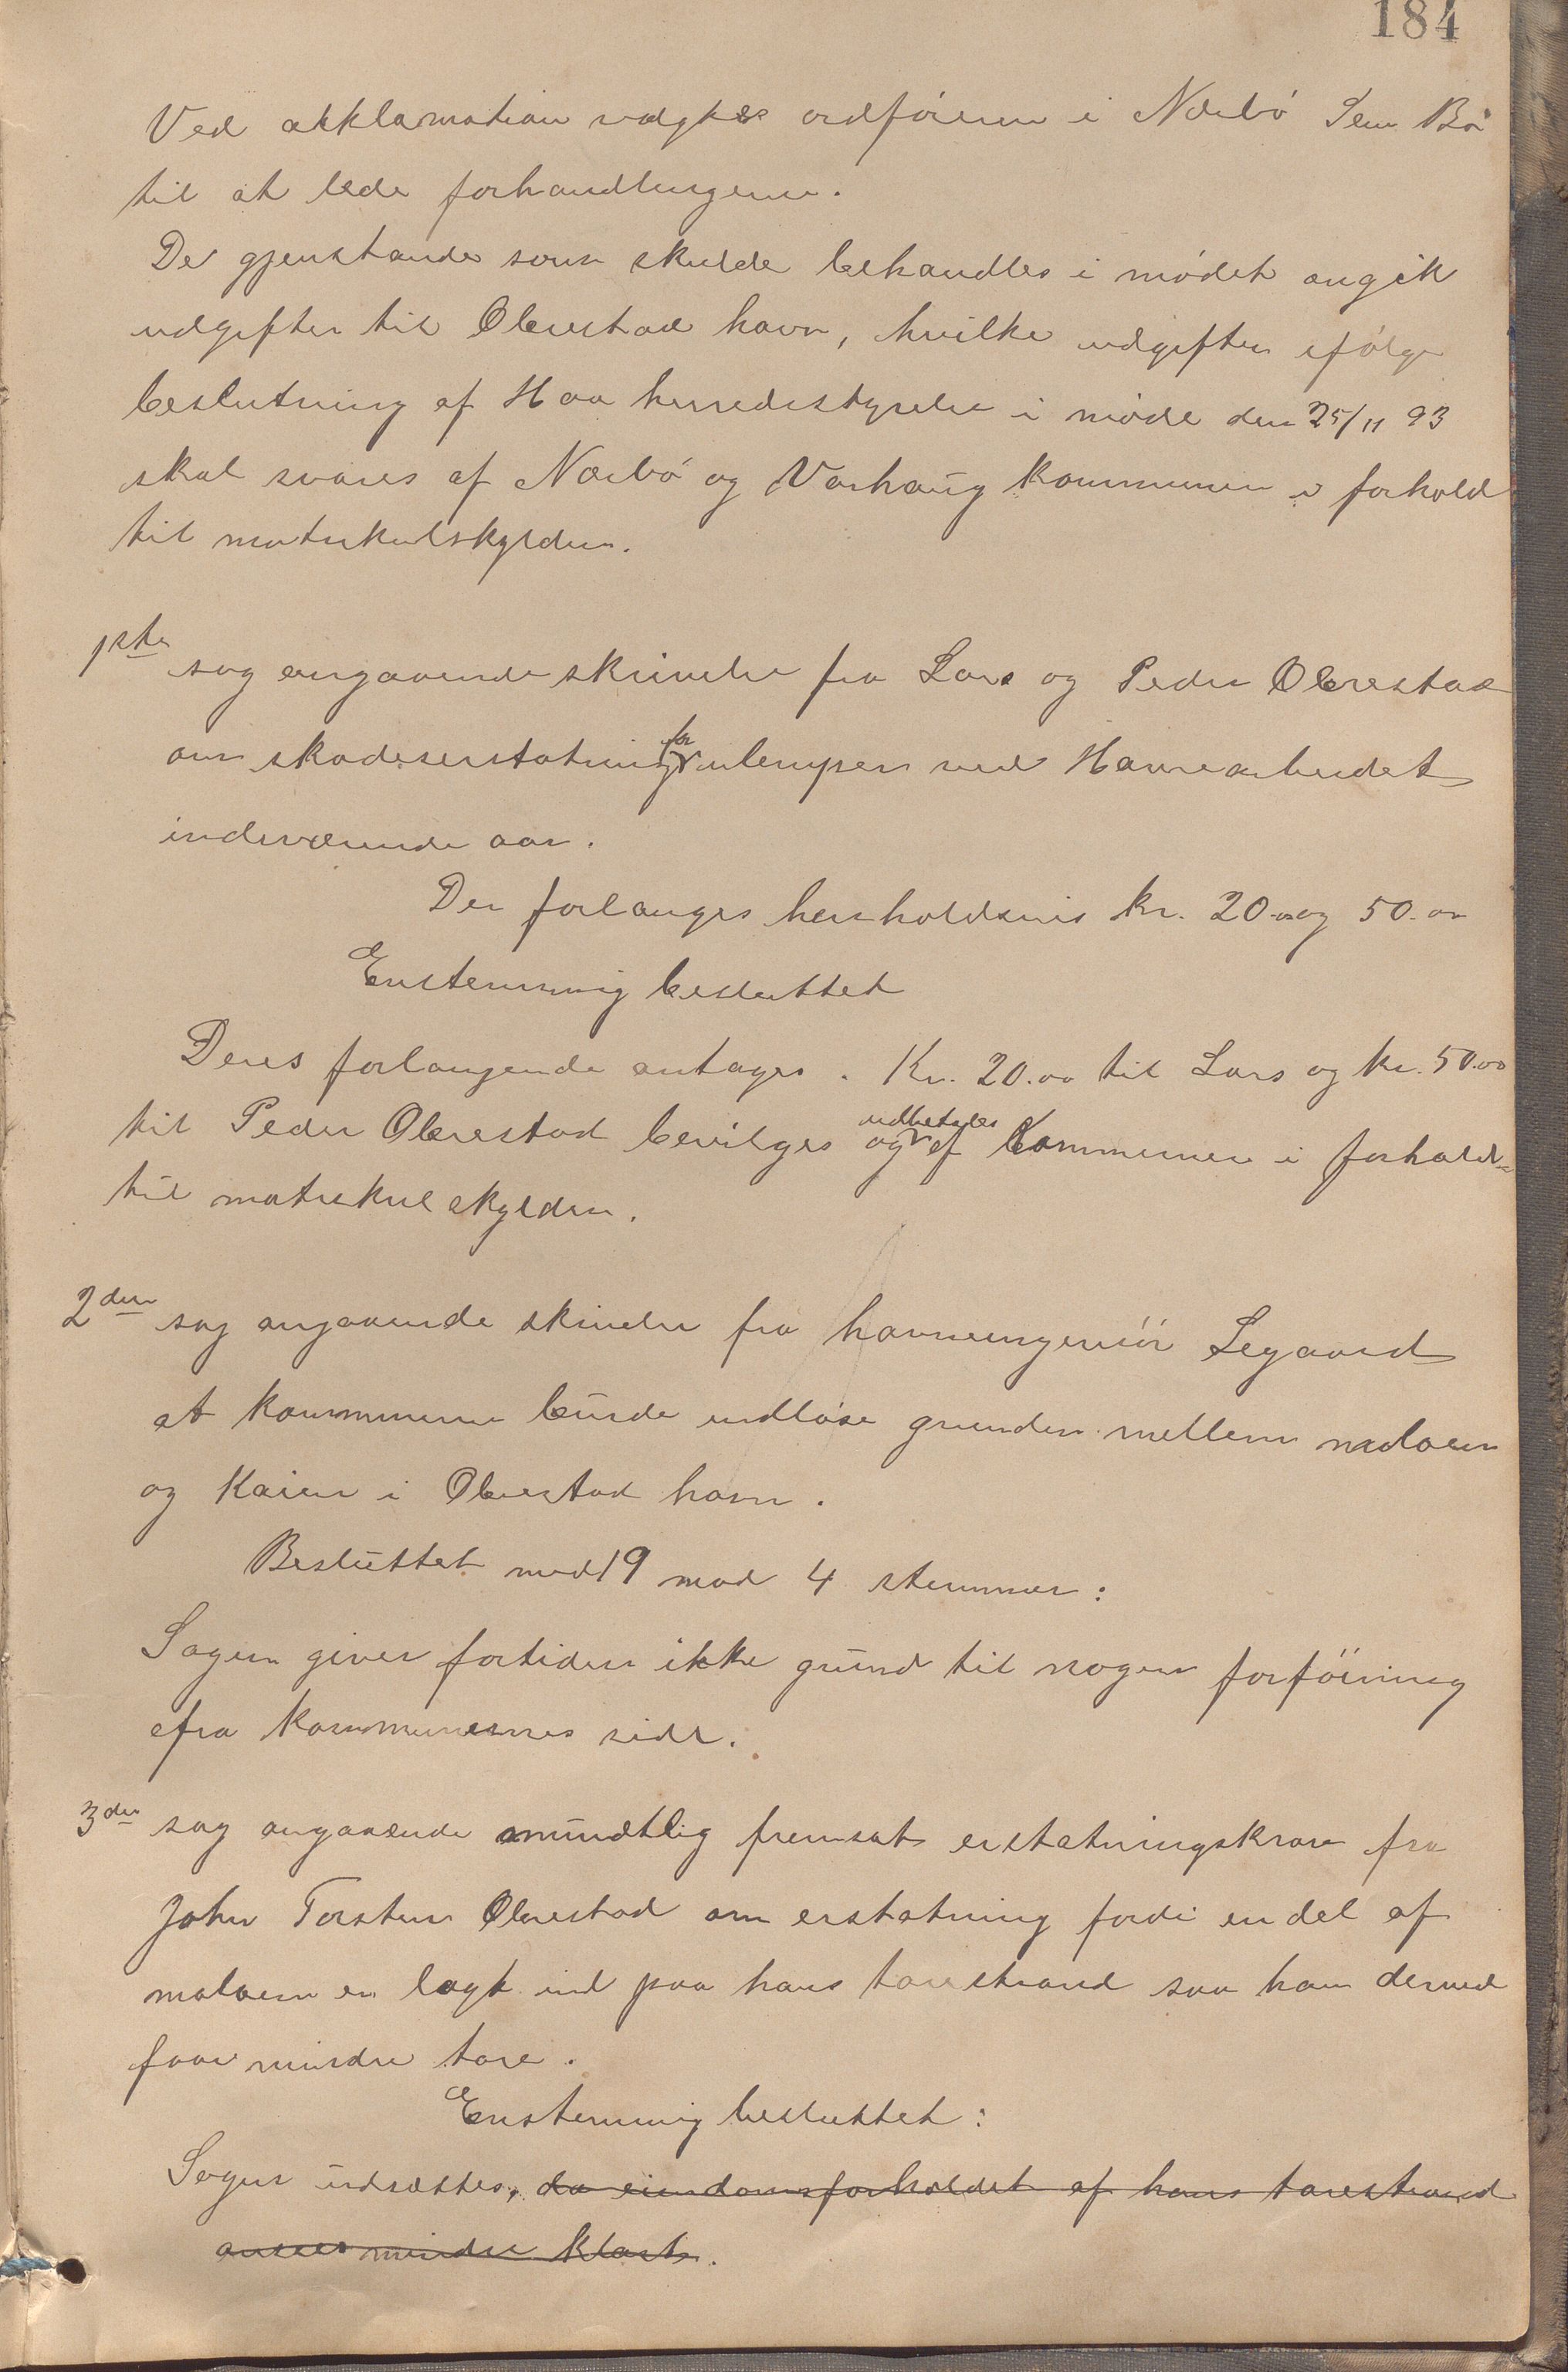 184
Ved akklamation valgtes ordføreren i Nærbø Sem Bø
til at lede forhandlingerne.
De gjenstande som skulde behandles i mødet angik
udgifter til Obrestad havn, hvilke udgifter ifølge
beslutning af Haa herredsstyrelse i møde den 25/11 93
skal svares af Nærbø og Varhaug kommuner i forhold
til matrikulskylden.
1ste sag angaaende skrivelse fra Lars og Peder Obrestad
om skadeserstatning for ulemper ved Havnearbeidet
indeværende aar.
Der forlanges henholdsvis kr. 20.00 og 50.00
Enstemmig besluttet
Deres forlangende antages. Kr. 20.00 til Lars og kr. 50.00
til Peder Obrestad bevilges og udbetales af Kommunerne i forhold
til matrikulskylden.
2den sag angaaende skrivelse fra havneingeniør Segaard
at kommunerne burde indløse grunden mellem moloen
og Kaien i Obrestad havn.
Besluttet med 19 mod 4 stemmer:
Sagen giver fortiden ikke grund til nogen forføining
ifra kommunernes side.
3die sag angaaende mundtlig fremsat erstatningskrav fra
John Torsten Obrestad om erstatning fordi en del af
moloen er lagt ind paa hans tarestrand saa han derved
faar mindre tare.
Enstemmig besluttet:
Sagen udsættes, da eiendomsforholdet af hans tarestrand
ansees mindre klart.